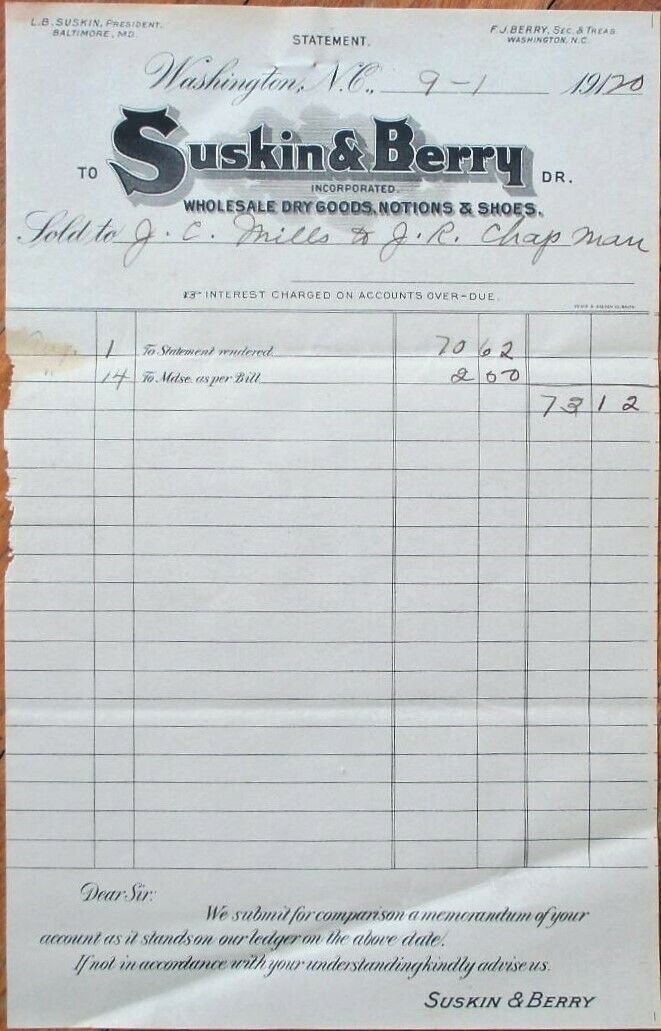 L.B. SUSKIN, PRESIDENT.
BALTIMORE, MD.
STATEMENT.
F.J. BERRY, SEC. & TREAS.
WASHINGTON, N.C.
Washington, N.C., 9-1 19120
TO Suskin & Berry DR.
INCORPORATED.
WHOLESALE DRY GOODS, NOTIONS & SHOES.
Sold to J. C. Mills & J. R. Chapman
INTEREST CHARGED ON ACCOUNTS OVER-DUE.
1 To Statement rendered 70 62
" 14 To Mdse. as per Bill 2 50
73 12
Dear Sir:
We submit for comparison a memorandum of your
account as it stands on our ledger on the above date.
If not in accordance with your understanding kindly advise us.
SUSKIN & BERRY